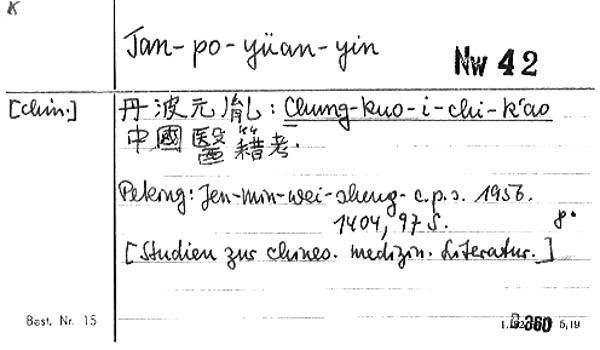 K
Tan-po-yüan-yin
Nw 42
[chin.]
丹波元胤: Chung-kuo-i-chi-k'ao
中國醫籍考.
Peking: Jen-min-wei-sheng-c.p.s. 1956.
1404, 97 S. 8°
[Studien zur chines. medizin. Literatur.]
Best. Nr. 15
360 5,19